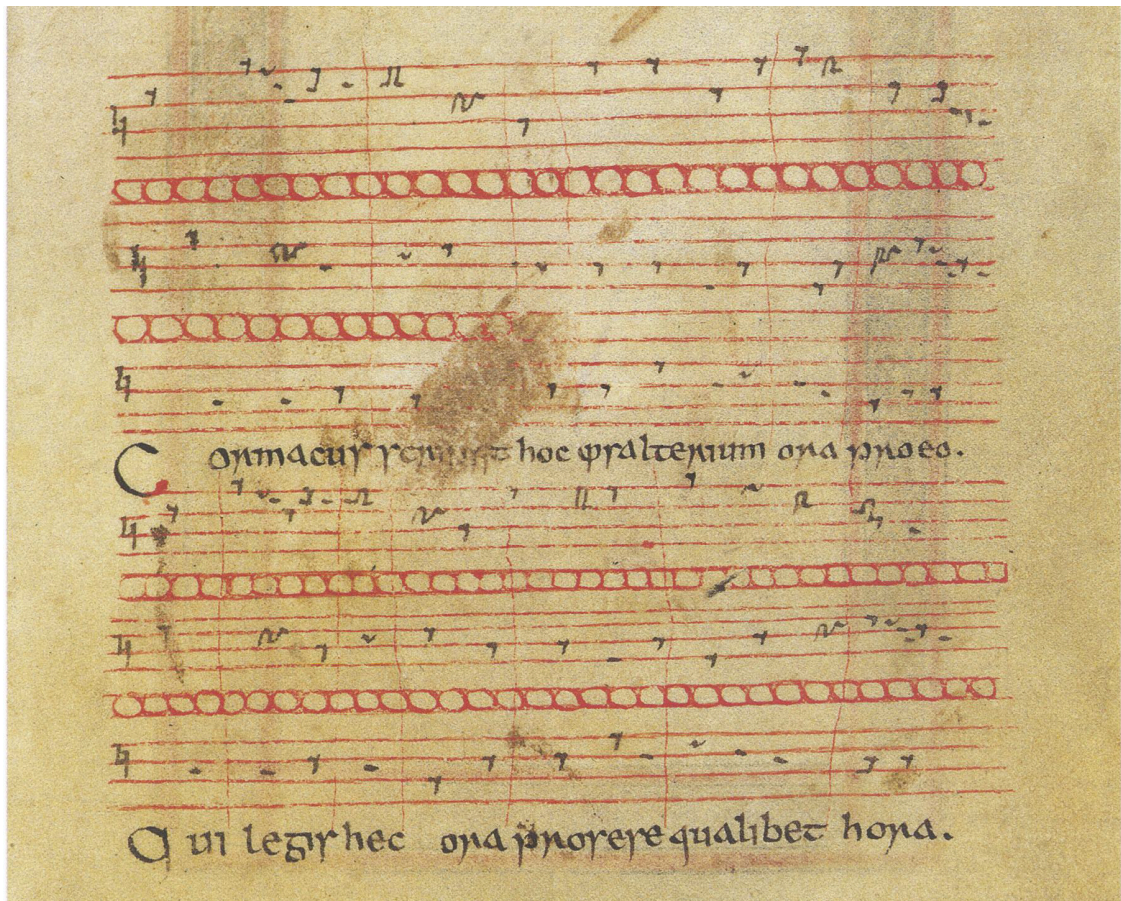 Cormacus scripsit hoc φsalterium ora pro eo.
Qui legis hec ora pro sese qualibet hora.